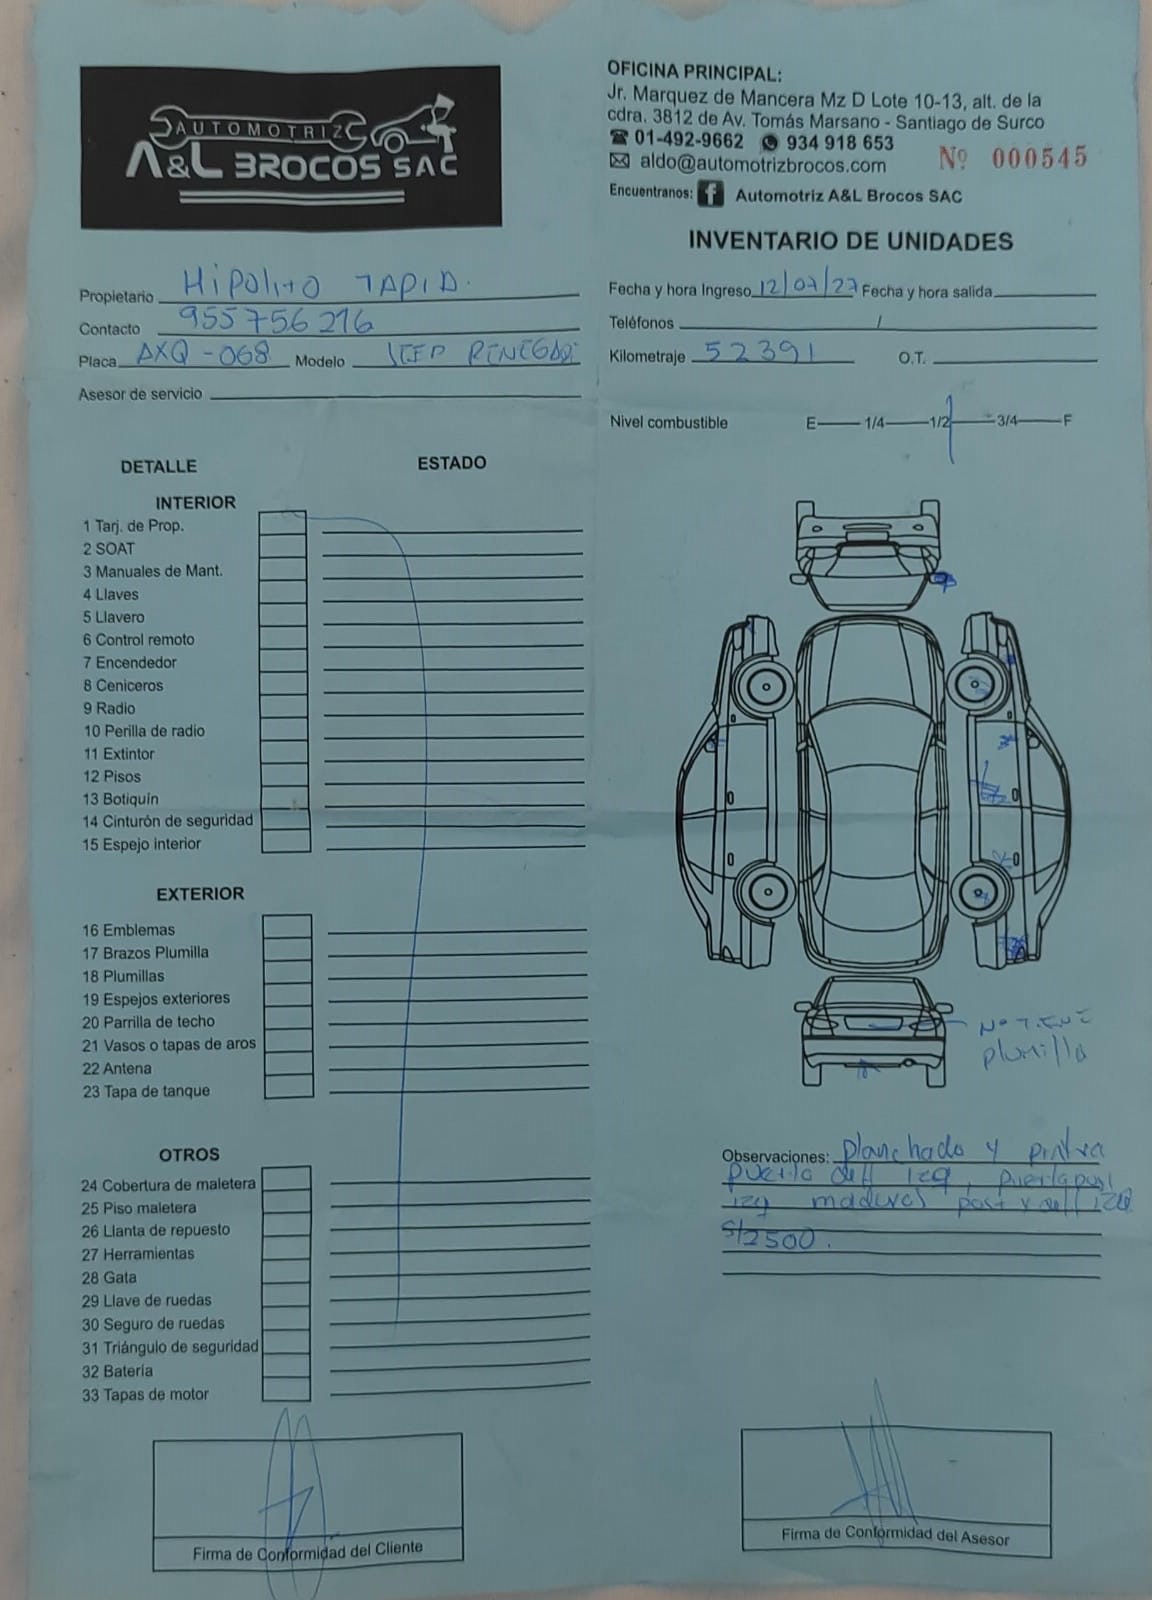 AUTOMOTRIZ
A&L BROCOS SAC
OFICINA PRINCIPAL:
Jr. Marquez de Mancera Mz D Lote 10-13, alt. de la
cdra. 3812 de Av. Tomás Marsano - Santiago de Surco
01-492-9662 934 918 653
aldo@automotrizbrocos.com Nº 000545
Encuentranos: Automotriz A&L Brocos SAC
INVENTARIO DE UNIDADES
Propietario Hipolito TAPIA.
Contacto 955756216
Placa AXQ-068 Modelo JEEP RENEGADE
Asesor de servicio
Fecha y hora Ingreso 12/07/27 Fecha y hora salida
Teléfonos /
Kilometraje 52391 O.T.
Nivel combustible E 1/4 1/2 3/4 F
DETALLE ESTADO
INTERIOR
1 Tarj. de Prop.
2 SOAT
3 Manuales de Mant.
4 Llaves
5 Llavero
6 Control remoto
7 Encendedor
8 Ceniceros
9 Radio
10 Perilla de radio
11 Extintor
12 Pisos
13 Botiquín
14 Cinturón de seguridad
15 Espejo interior
EXTERIOR
16 Emblemas
17 Brazos Plumilla
18 Plumillas
19 Espejos exteriores
20 Parrilla de techo
21 Vasos o tapas de aros
22 Antena
23 Tapa de tanque
OTROS
24 Cobertura de maletera
25 Piso maletera
26 Llanta de repuesto
27 Herramientas
28 Gata
29 Llave de ruedas
30 Seguro de ruedas
31 Triángulo de seguridad
32 Batería
33 Tapas de motor
No TIENE
plumilla
Observaciones: planchado y pintura
puerta del izq, puerta post
izq post y del izq
S/2500.
Firma de Conformidad del Cliente
Firma de Conformidad del Asesor